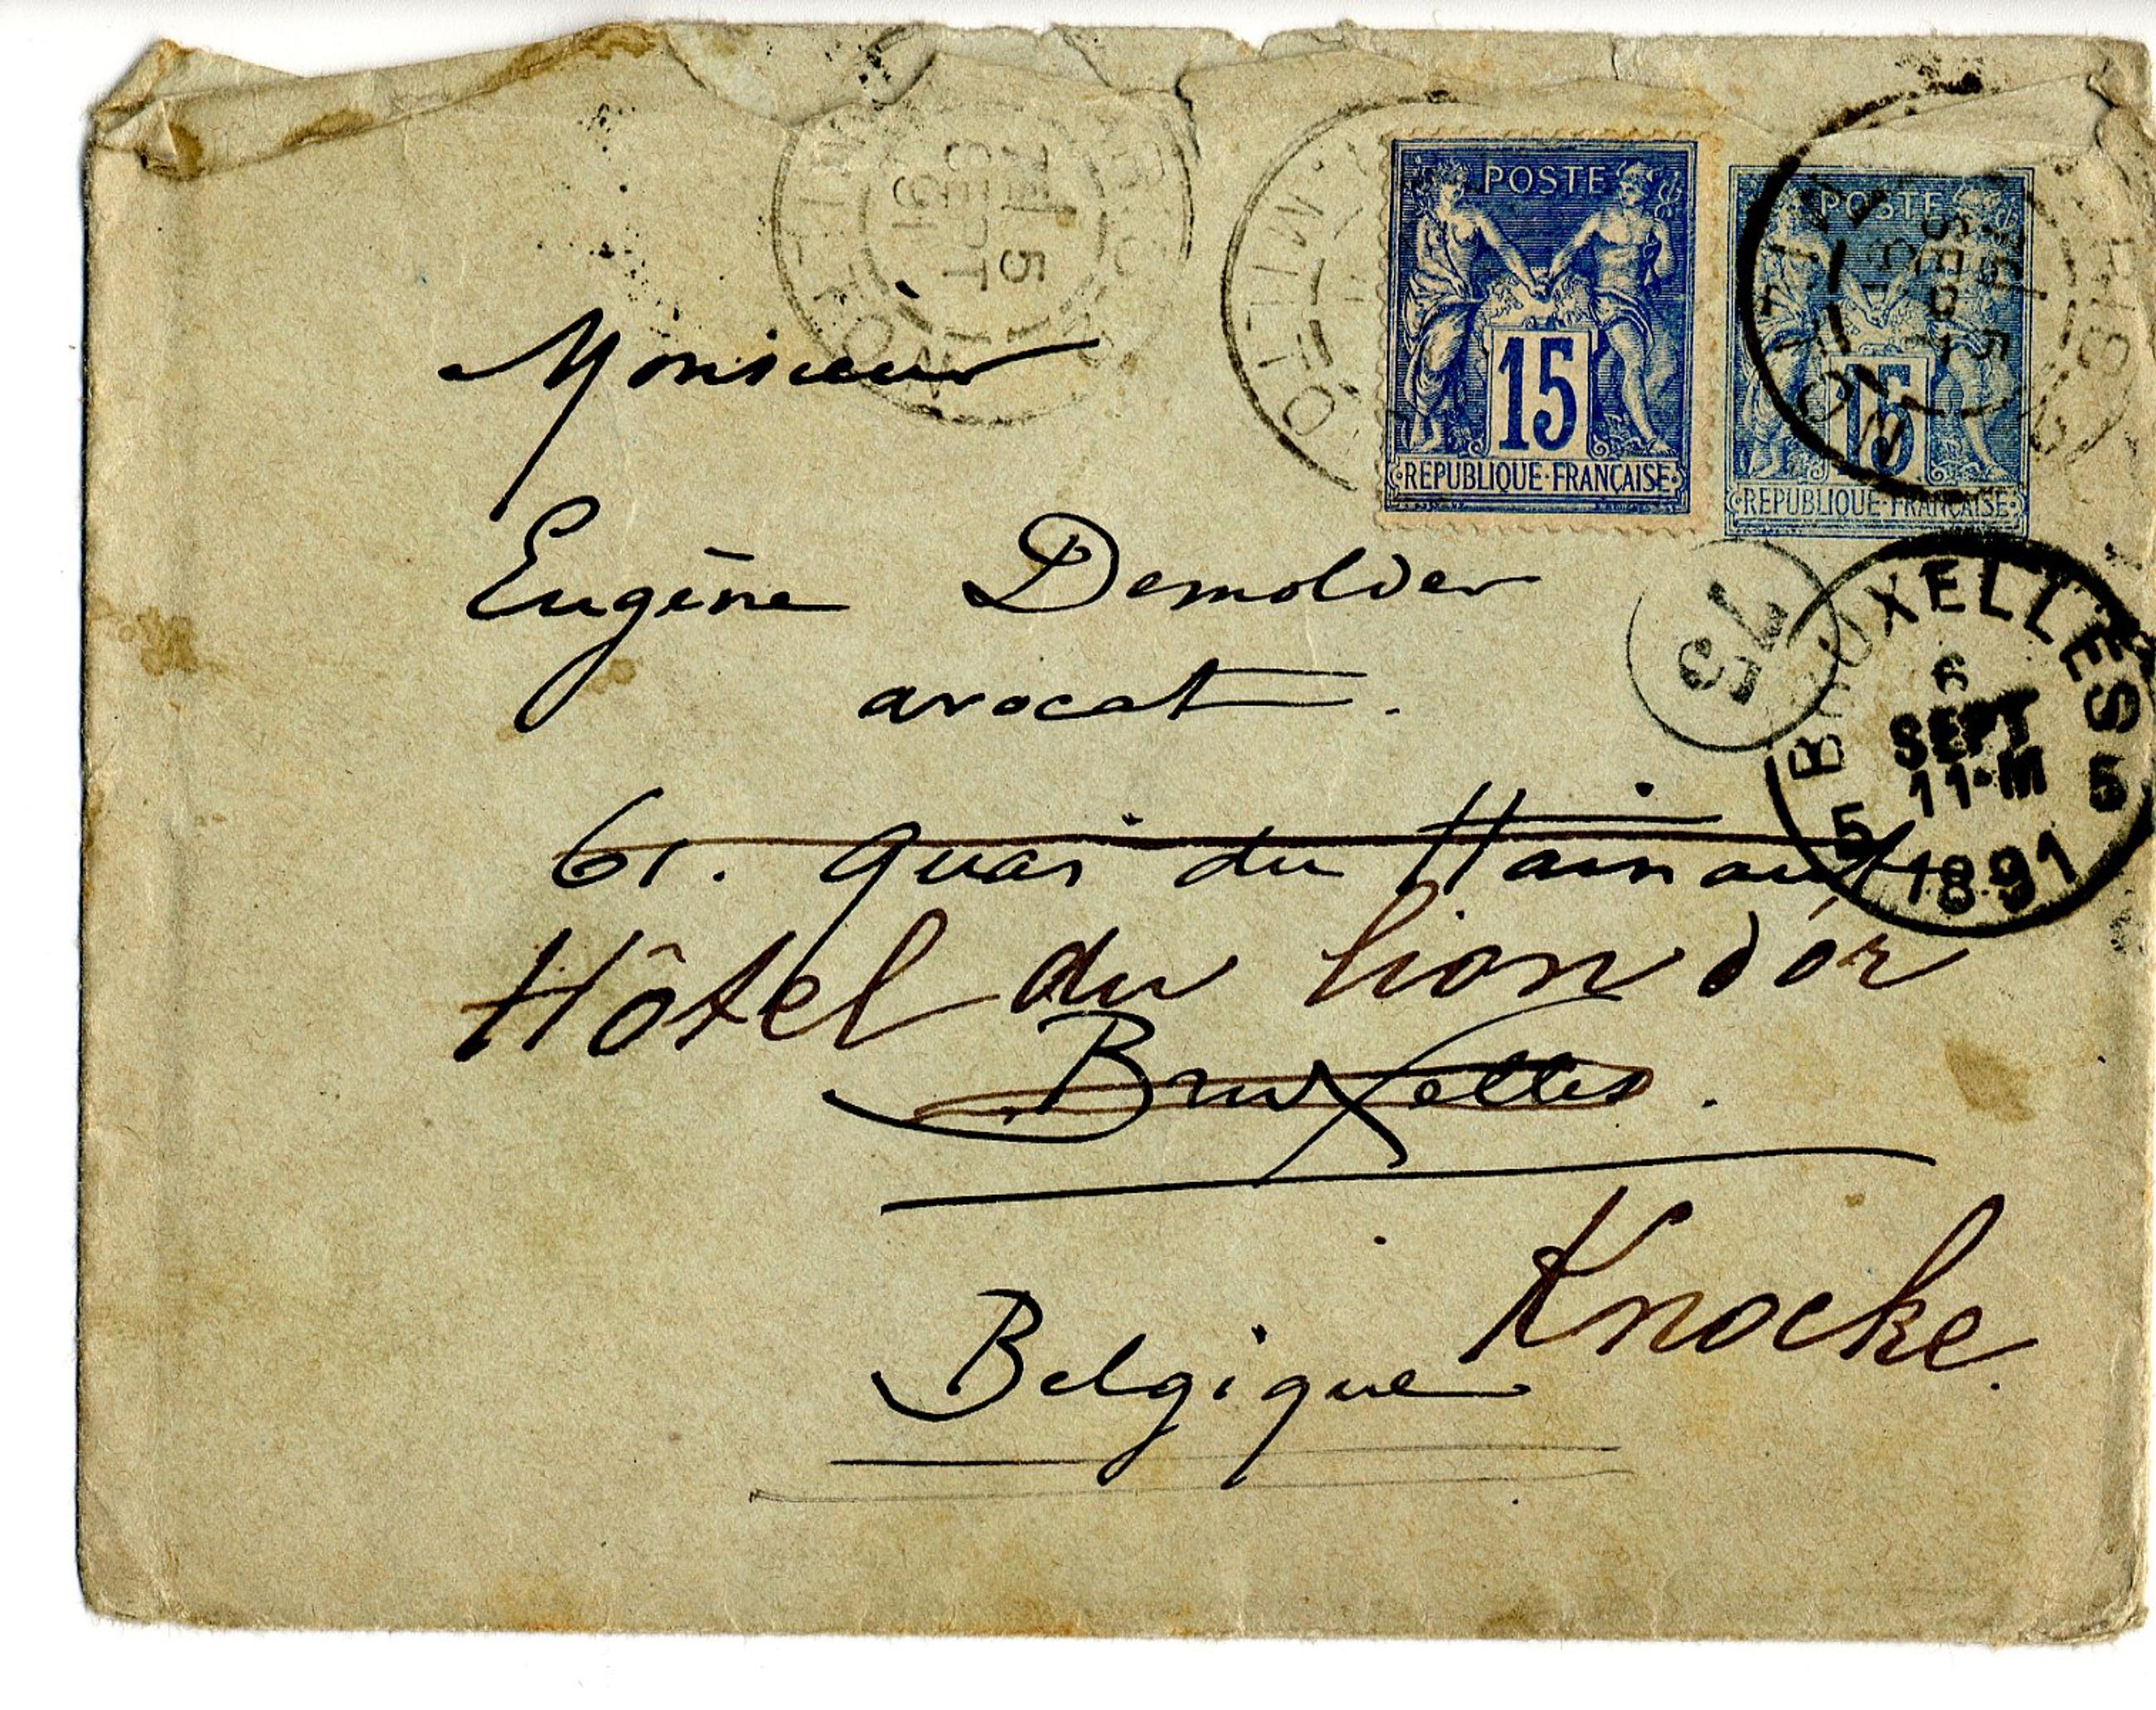 POSTE
15
REPUBLIQUE FRANÇAISE
POSTE
15
REPUBLIQUE FRANÇAISE
5
SEPT
91
75
BRUXELLES
6
SEPT
11-M
5 5
1891
Monsieur
Eugène Demolder
avocat.
61. quai du Hainaut
Hôtel du lion d'or
Bruxelles.
Knocke.
Belgique